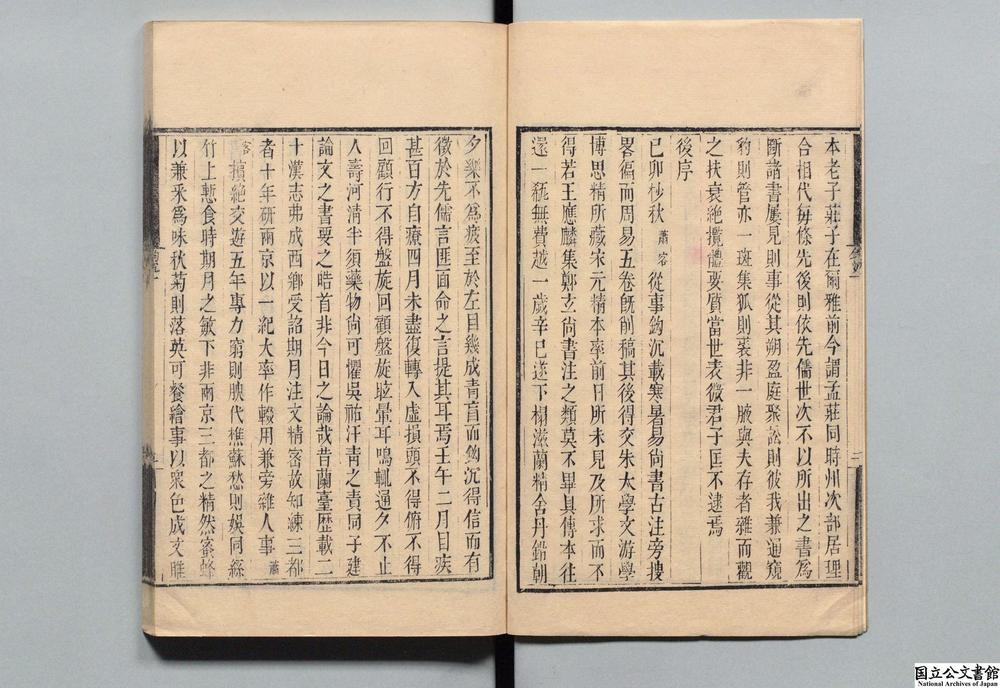 本老子莊子在爾雅前今謂孟莊同時州次部居理
合相代每條先後則依先儒世次不以所出之書爲
斷諸書屢見則事從其朔盈庭聚訟則彼我兼通窺
豹則管亦一斑集狐則裘非一腋與夫存者雜而觀
之扶衰絶攬體要質當世表微君子匡不逮焉
後序
己卯杪秋蕭客從事鉤沉載寒暑易尚書古注旁搜
畧徧而周易五卷旣削稿其後得交朱太學文游學
博思精所藏宋元精本率前日所未見及所求而不
得若王應麟集鄭玄尚書注之類莫不畢具傳本往
還一瓻無費越一歲辛巳遂下榻滋蘭精舍丹鉛朝
夕樂不爲疲至於左目幾成靑盲而鉤沉得信而有
徵於先儒言匪面命之言提其耳焉壬午二月目疾
甚百方自療四月未盡復轉入虛損頭不得俯不得
回顧行不得盤旋回顧盤旋眩暈耳鳴輒通夕不止
人壽河清半須藥物尚可懼吳祐汗靑之責同子建
論文之書要之皓首非今日之論哉昔蘭臺歷載二
十漢志弗成西鄉受詔期月注文精密故知練三都
者十年研兩京以一紀大率作輟用兼旁雜人事蕭
客擯絶交遊五年專力窮則腴代樵蘇愁則娛同絲
竹上慙食時期月之敏下非兩京三都之精然蜜蜂
以兼采爲味秋菊則落英可餐繪事以衆色成文雎
国立公文書館
National Archives of Japan